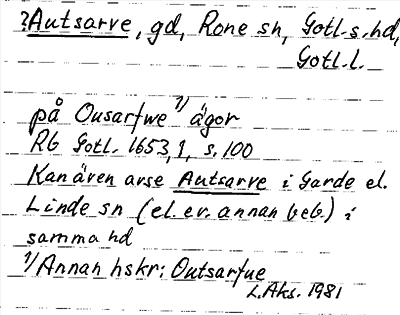 ?Autsarve, gd, Rone sn, Gotl. s. hd,
Gotl. l.
på Ousarfwe 1) ägor
RG Gotl. 1653,1, s. 100
Kan även avse Autsarve i Garde el.
Linde sn (el. ev. annan beb.) i
samma hd
1) Annan hskr: Outsarfue
L. Aks. 1981